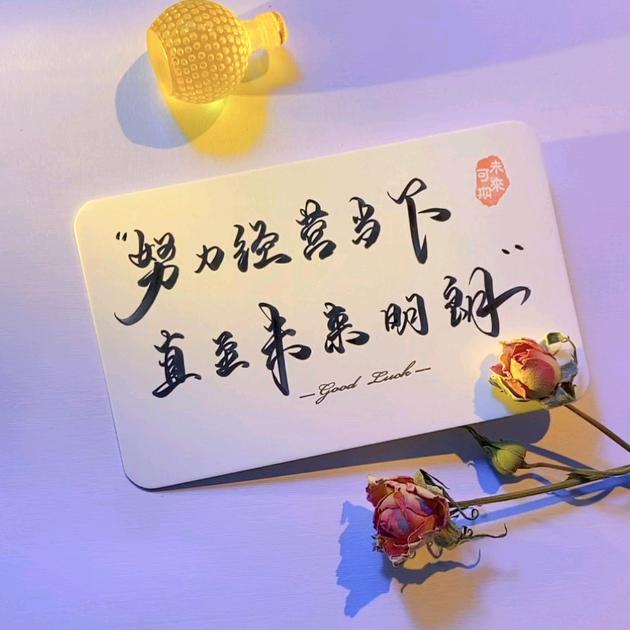 “努力经营当下
直至未来明朗”
—Good Luck—
未來
可期